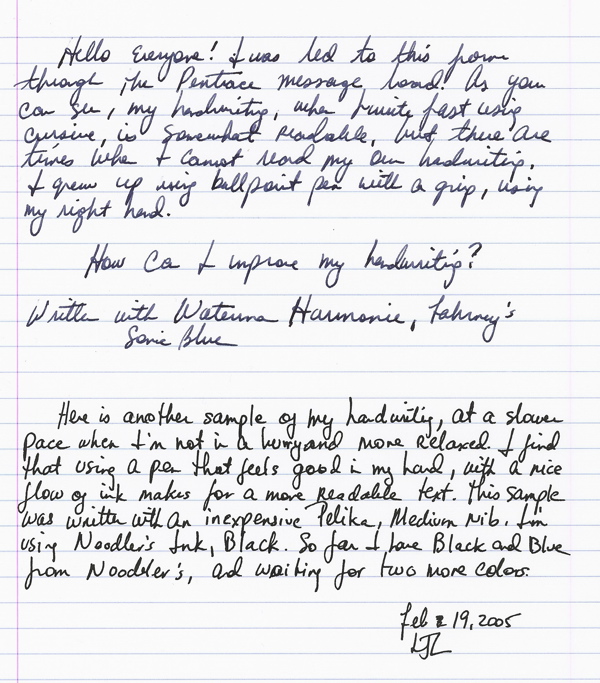 Hello Everyone! I was led to this forum
through the Pentrace message board! As you
can see, my handwriting, when I write fast using
cursive, is somewhat readable, but there are
times when I cannot read my own handwriting.
I grew up using ballpoint pen with a grip, using
my right hand.
How Can I improve my handwriting?
Written with Waterman Harmonie, Fahrney's
Sonic Blue
Here is another sample of my handwriting, at a slower
pace when I'm not in a hurry and more relaxed. I find
that using a pen that feels good in my hand, with a nice
flow of ink makes for a more readable text. This sample
was written with an inexpensive Pelika, Medium Nib. I'm
using Noodler's Ink, Black. So far I have Black and Blue
from Noodler's, and waiting for two more colors.
Feb 19, 2005
LJL